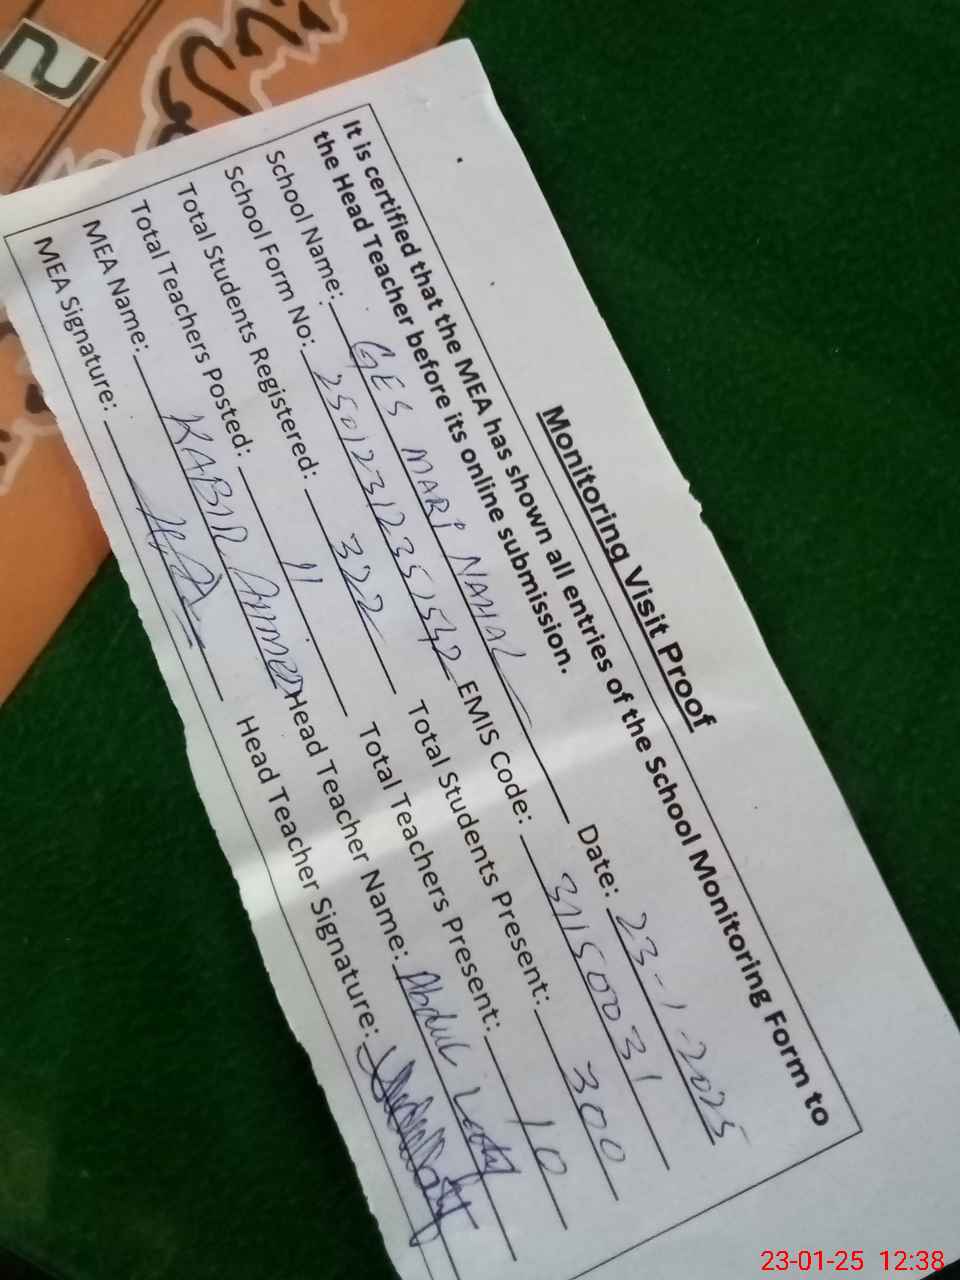 Monitoring Visit Proof
It is certified that the MEA has shown all entries of the School Monitoring Form to
the Head Teacher before its online submission.
School Name: GES MARI NAHAL Date: 23-1-2025
School Form No: 25012312351542 EMIS Code: 31150031
Total Students Registered: 322 Total Students Present: 300
Total Teachers Posted: 11 Total Teachers Present: 10
MEA Name: KABIR AHMED Head Teacher Name: Abdul
MEA Signature: Head Teacher Signature:
23-01-25 12:38